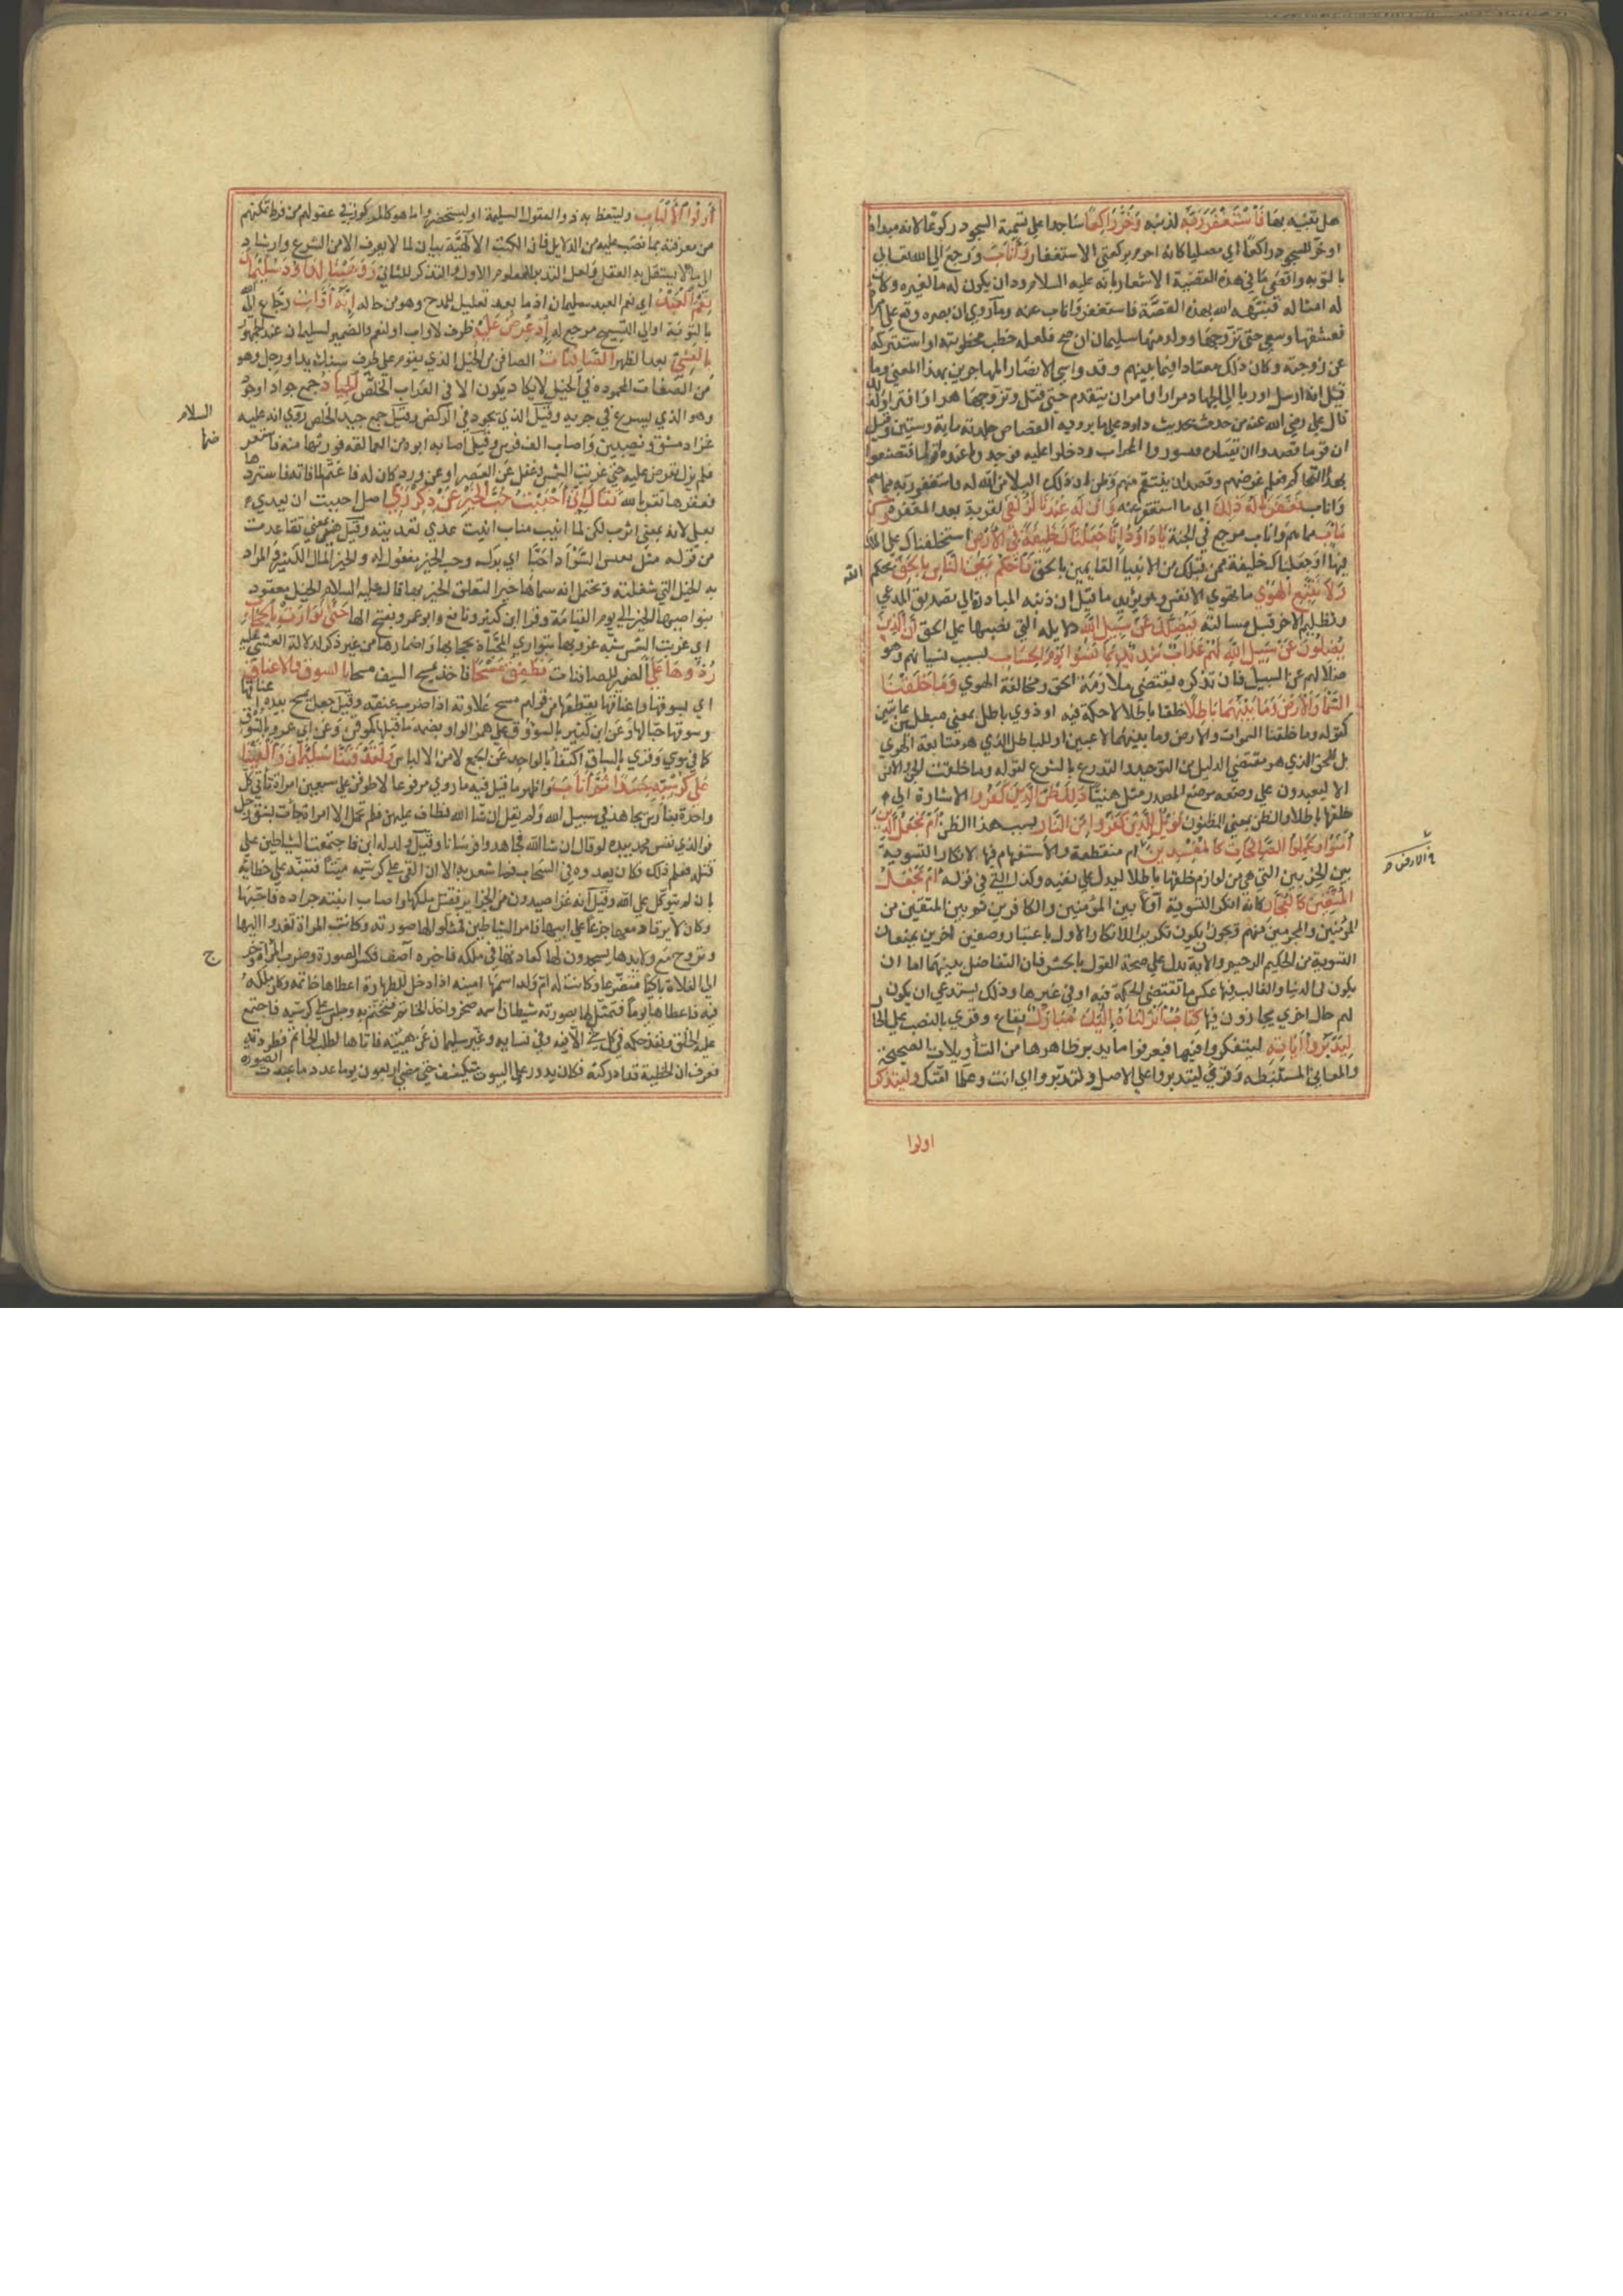 هل تغبه بها فَاسْتَغْفَرَ رَبَّهُ لذنبه وَخَرَّ رَاكِعًا ساجدا على تسمية السجود ركوعا لانه مبداه
او خر للسجود راكعا اي مصليا كانه احرم بركعتي الاستغفار وَأَنَابَ ورجع الى الله تعالى
بالتوبه واقصى ما في هذه القضية الاشعار بانه عليه السلام ود ان يكون له ما لغيره وكان
له امثاله فنبهه الله بهذه القصة فاستغفر واناب عنه وما روي ان بصره وقع على امراة
فعشقها وسعى حتى تزوجها وولد منها سليمان ان صح فلعله خطب مخطوبته او استنزله
عن زوجته وكان ذلك معتادا فيما بينهم وقد واسى الانصار المهاجرين بهذا المعنى وما
قيل انه ارسل اوريا الى الجهاد مرارا وامر ان يتقدم حتى قتل وتزوجها هراء وافتراء ولذلك
قال علي رضي الله عنه من حدث بحديث داود على ما يرويه القصاص جلدته ماية وستين وقيل
ان قوما قصدوا ان يقتلوه فتسوروا المحراب ودخلوا عليه فوجدوا عنده اقواما فتصنعوا
بهذا التحاكم فعلم غرضهم وقصد ان ينتقم منهم وظن ان ذلك ابتلاء من الله له فاستغفر ربه مما هم
واناب فَغَفَرْنَا لَهُ ذَلِكَ اي ما استغفر عنه وَإِنَّ لَهُ عِنْدَنَا لَزُلْفَى لقربة بعد المغفرة وَحُسْنَ
مَآبٍ مرجع في الجنة يَا دَاوُدُ إِنَّا جَعَلْنَاكَ خَلِيفَةً فِي الْأَرْضِ استخلفناك على الملك
فيها او جعلناك خليفة ممن قبلك من الانبيا القايمين بالحق فَاحْكُمْ بَيْنَ النَّاسِ بِالْحَقِّ بحكم الله
وَلَا تَتَّبِعِ الْهَوَى ما تهوي الانفس وهو يؤيد ما قيل ان ذنبه المبادرة الى تصديق المدعي
وتظليم الاخر قبل مسالته فَيُضِلَّكَ عَنْ سَبِيلِ اللَّهِ دلايله التي نصبها على الحق إِنَّ الَّذِينَ
يَضِلُّونَ عَنْ سَبِيلِ اللَّهِ لَهُمْ عَذَابٌ شَدِيدٌ بِمَا نَسُوا يَوْمَ الْحِسَابِ بسبب نسيانهم وهو
ضلالهم عن السبيل فان تذكره يقتضي ملازمة الحق ومخالفة الهوي وَمَا خَلَقْنَا
السَّمَاءَ وَالْأَرْضَ وَمَا بَيْنَهُمَا بَاطِلًا خلقا باطلا لاحكمة فيه او ذوي باطل بمعني مبطلين عابثين
كقوله وما خلقنا السموات والارض وما بينهما لاعبين او للباطل الذي هو متابعة الهوي
بل للحق الذي هو مقتضي الدليل من التوحيد والتدرع بالشرع لقوله وما خلقت الجن والانس
الا ليعبدون على وضعه موضع المصدر مثل هنيئا ذَلِكَ ظَنُّ الَّذِينَ كَفَرُوا الاشارة الى
خلقها باطلا والظن بمعني المظنون فَوَيْلٌ لِلَّذِينَ كَفَرُوا مِنَ النَّارِ بسبب هذا الظن أَمْ نَجْعَلُ الَّذِينَ
آمَنُوا وَعَمِلُوا الصَّالِحَاتِ كَالْمُفْسِدِينَ ام منقطعة والاستفهام فيها لانكار التسوية
في الارض
بين الحزبين التي هي من لوازم خلقها باطلا ليدل على نفيه وكذا التي في قوله أَمْ نَجْعَلُ
الْمُتَّقِينَ كَالْفُجَّارِ كانه انكر التسوية اولا بين المؤمنين والكافرين ثم بين المتقين من
المؤمنين والمجرمين منهم ويجوز ان يكون تكريرا للانكار الاول باعتبار وصفين اخرين يمنعان
التسوية من الحكيم الرحيم والاية تدل على صحة القول بالحشر فان التفاضل بينهما اما ان
يكون في الدنيا والغالب فيها عكس ما تقتضي الحكمة فيه او في غيرها وذلك يستدعي ان يكون
لهم حال اخري يجازون فيها كِتَابٌ أَنْزَلْنَاهُ إِلَيْكَ مُبَارَكٌ نفاع وقري بالنصب على الحال
لِيَدَّبَّرُوا آيَاتِهِ ليتفكروا فيها فيعرفوا ما يدبر ظاهرها من التأويلات الصحيحة
والمعاني المستنبطة وقري ليتدبروا على الاصل ولتدبروا اي انت وعلما امتك وَلِيَتَذَكَّرَ
اولوا
أُولُوا الْأَلْبَابِ وليتعظ به ذوو العقول السليمة او ليستحضروا ما هو كالمركوز في عقولهم من فرط تمكنهم
من معرفته بما نصب عليه من الدلايل فان الكتب الالهية بيان لما لا يعرف الا من الشرع وارشاد
الى ما لا يستقل به العقل ولعل التدبر للمعلوم الاول والتذكر للثاني وَوَهَبْنَا لِدَاوُدَ سُلَيْمَانَ
نِعْمَ الْعَبْدُ اي نعم العبد سليمان اذ ما بعده تعليل للمدح وهو من حاله إِنَّهُ أَوَّابٌ رجاع الى الله
بالتوبة او الى التسبيح مرجع له إِذْ عُرِضَ عَلَيْهِ ظرف لاواب او لنعم والضمير لسليمان عند الجمهور
بِالْعَشِيِّ بعد الظهر الصَّافِنَاتُ الصافن من الخيل الذي يقوم على طرف سنبك يد او رجل وهو
من الصفات المحمودة في الخيل لا يكاد يكون الا في العراب الخلص الْجِيَادُ جمع جواد او جود
وهو الذي يسرع في جريه وقيل الذي يجود في الركض وقيل جمع جيد روي انه عليه
السلام
غزا دمشق ونصيبين واصاب الف فرس وقيل اصابها ابوه من العمالقة فورثها منه فاستعر
ضها
فلم يزل تعرض عليه حتى غربت الشمس وغفل عن العصر او عن ورد كان له فاغتم لما فاته فاستردها
فعقرها تقربا لله فَقَالَ إِنِّي أَحْبَبْتُ حُبَّ الْخَيْرِ عَنْ ذِكْرِ رَبِّي اصل احببت ان يعدي
بعلى لانه بمعني اثرت لكن لما انيب مناب انبت عدي تعديته وقيل هو بمعني تقاعدت
من قوله مثل بعير السوء اذ احبا اي برك وحب الخير مفعول له والخير المال الكثير والمراد
به الخيل التي شغلته ويحتمل انه سماها خيرا لتعلق الخير بها قال عليه السلام الخيل معقود
بنواصيها الخير الى يوم القيامة وقرا ابن كثير ونافع وابو عمرو بفتح اليا حَتَّى تَوَارَتْ بِالْحِجَابِ
اي غربت الشمس شبه غروبها بتواري المخباة بحجابها واضمارها من غير ذكر لدلالة العشي عليه
رُدُّوهَا عَلَيَّ الضمير للصافنات فَطَفِقَ مَسْحًا فاخذ يمسح السيف مسحا بِالسُّوقِ وَالْأَعْنَاقِ
اي بسوقها واعناقها يقطعها من قولهم مسح علاوته اذا ضرب عنقه وقيل جعل يمسح بيده اعناقها
وسوقها حبا لها وعن ابن كثير بالسؤوق على همز الواو بضمة ما قبلها كموقن وعن ابي عمرو بالسؤوق
كما في نوي وقري بالساق اكتفا بالواحد عن الجمع لامن الالباس وَلَقَدْ فَتَنَّا سُلَيْمَانَ وَأَلْقَيْنَا
عَلَى كُرْسِيِّهِ جَسَدًا ثُمَّ أَنَابَ واظهر ما قيل فيه ما روي مرفوعا لاطوفن على سبعين امراة تاتي كل
واحدة بفارس يجاهد في سبيل الله ولم يقل ان شا الله فطاف عليهن فلم تحمل الا امراة جات بشق رجل
فوالذي نفس محمد بيده لو قال ان شا الله لجاهدوا فرسانا وقيل ولد له ابن فاجتمعت الشياطين على
قتله فعلم ذلك وكان يغدوه في السحاب فما شعر به الا ان القي على كرسيه ميتا فتنبه على خطايه
بان لم يتوكل على الله وقيل انه غزا صيدون من الجزاير فقتل ملكها واصاب ابنته جرادة فاحبها
وكان لا يرقا دمعها جزعا على ابيها فامر الشياطين فمثلوا لها صورته وكانت المراة تغدوا اليها
وتروح مع ولايدها يسجدون لها كعادتها في ملكه فاخبره آصف فكسر الصورة وضرب المراة وخرج
ج
الى الفلاة باكيا متضرعا وكانت له ام ولد اسمها امينه اذا دخل للطهارة اعطاها خاتمه وكان ملكه
فيه فاعطاها يوما فتمثل لها بصورته شيطان اسمه صخر واخذ الخاتم فتختم به وجلس على كرسيه فاجتمع
عليه الخلق ونفذ حكمه في كل شي الا فيه وفي نسايه وغير سليمان عن هيئته فاتاها لطلب الخاتم فطردته
فعرف ان الخطية قد ادركته فكان يدور على البيوت يتكفف حتى مضى اربعون يوما عدد ما عبدت الصورة